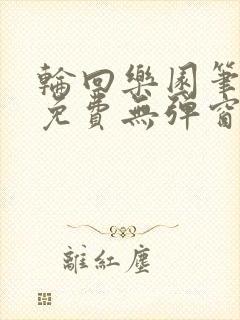 輪回樂園筆
免費無彈窗
離紅塵